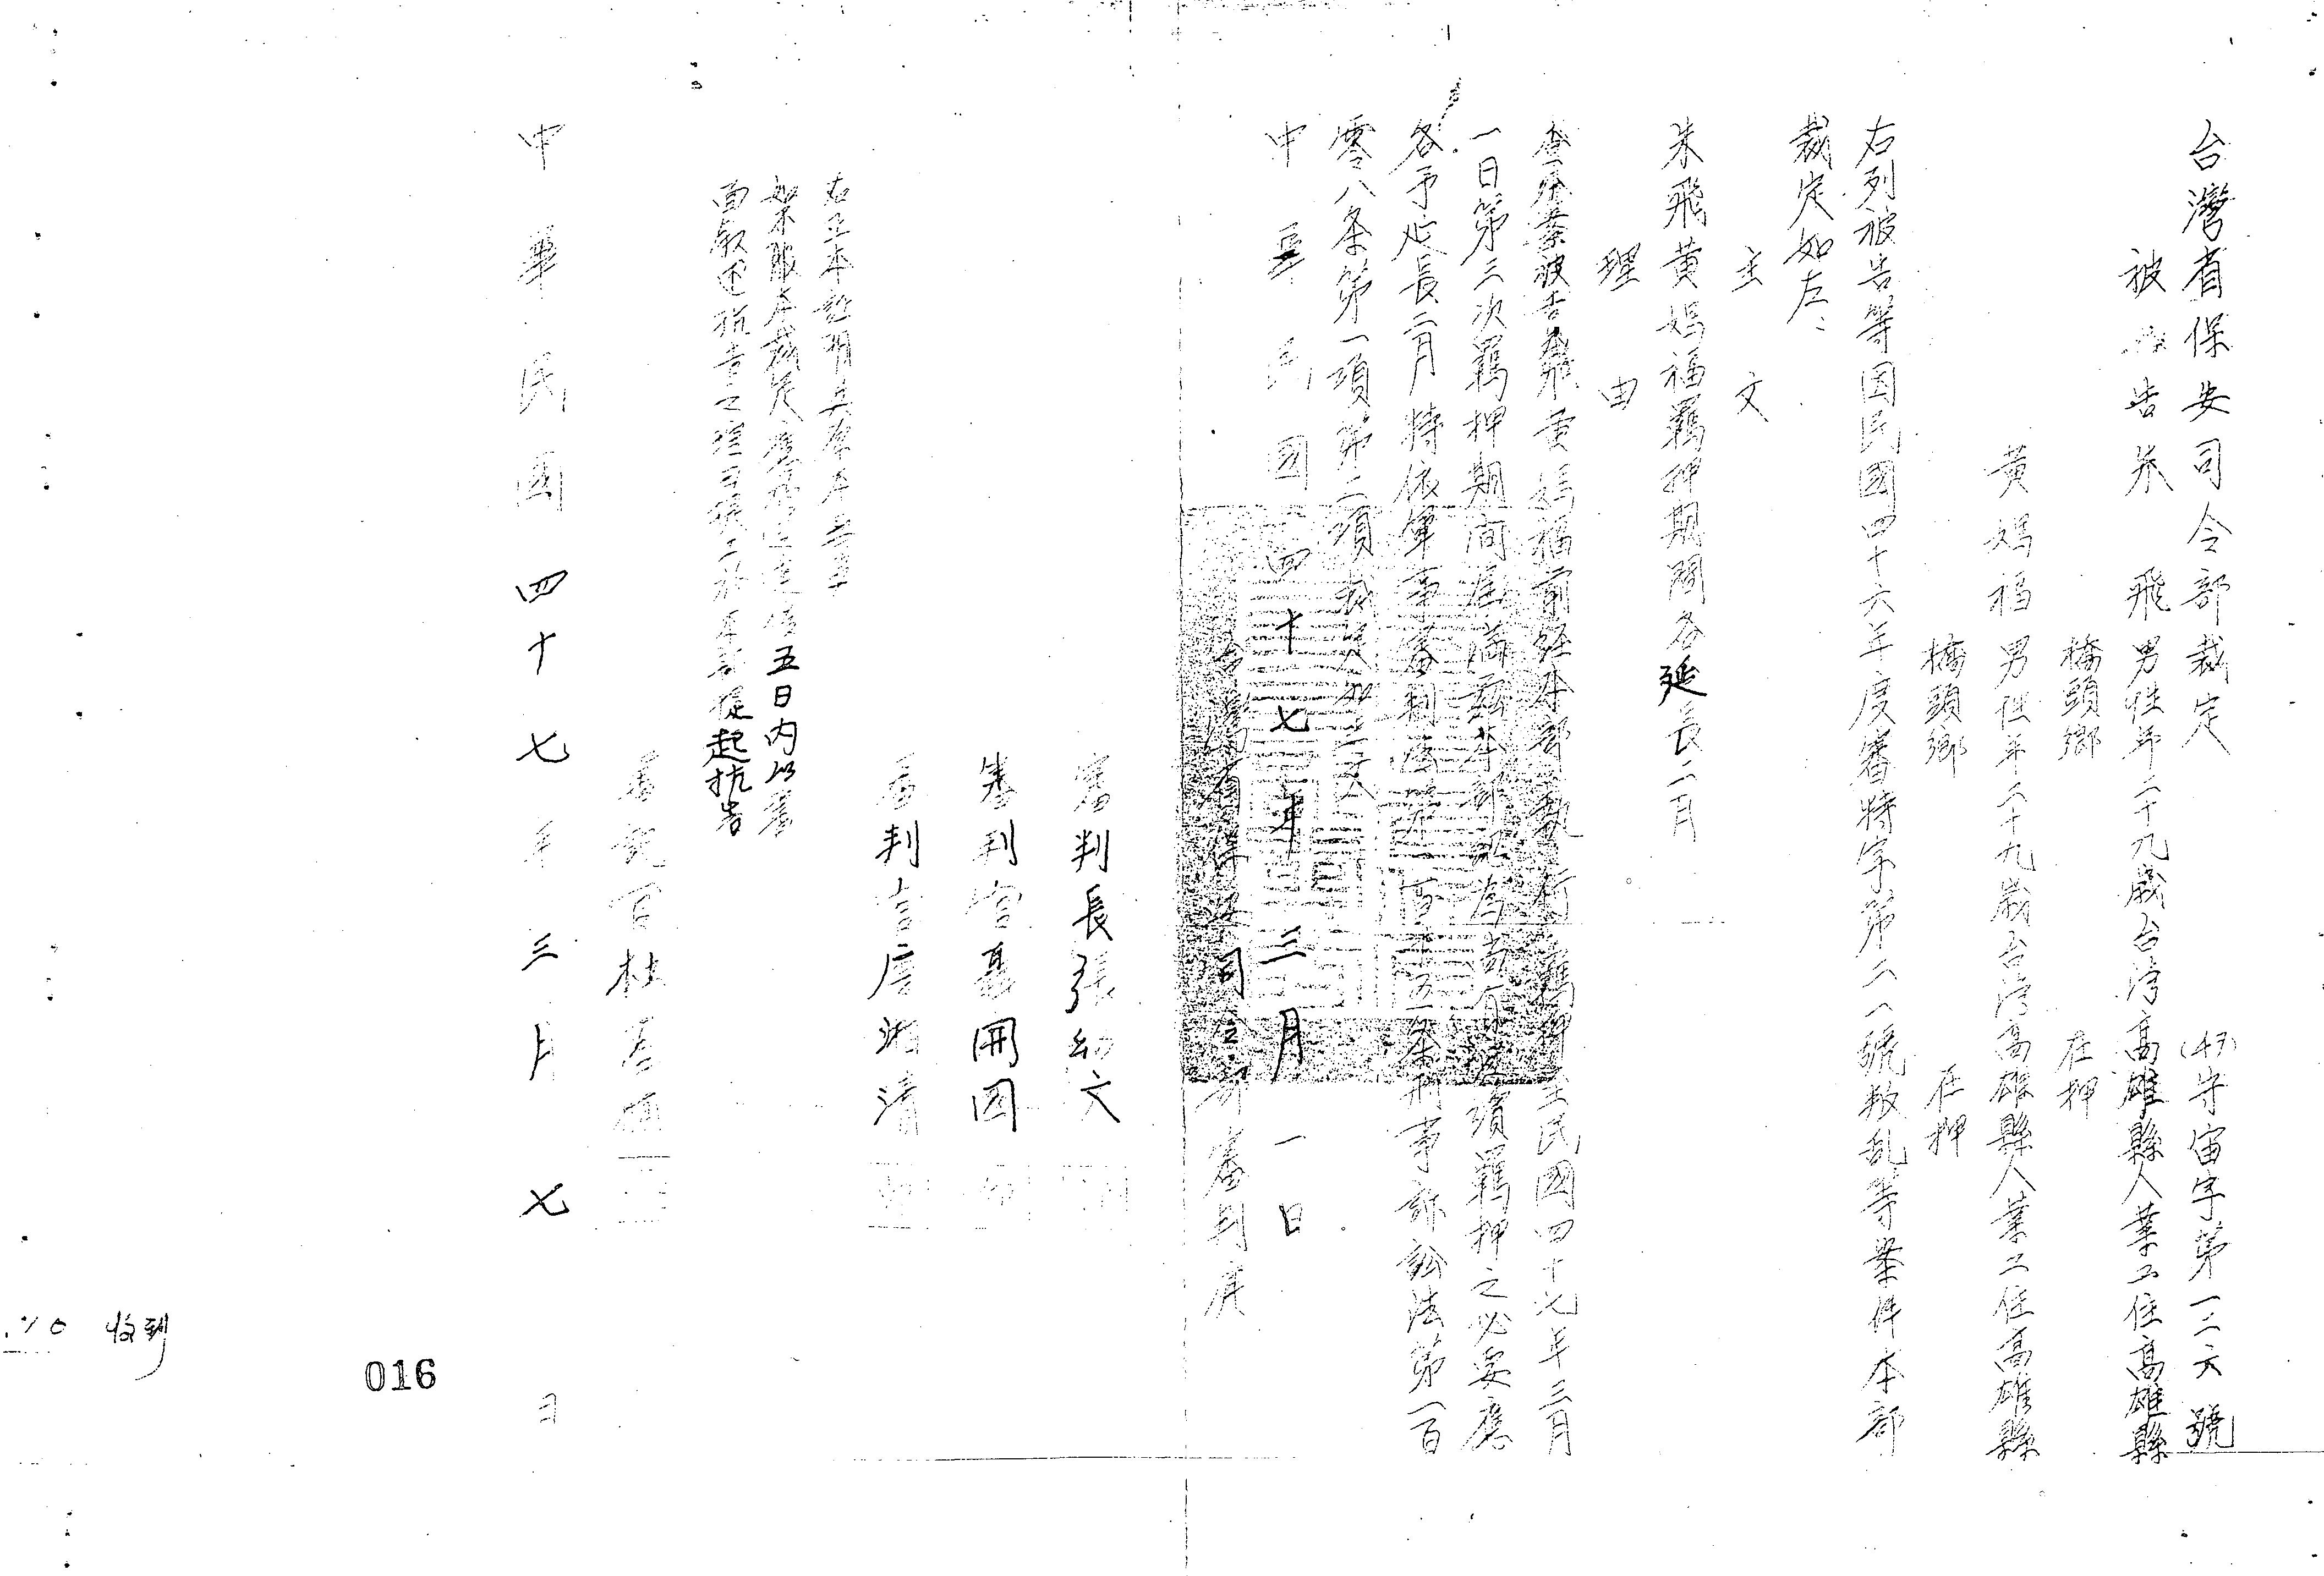 台灣省保安司令部裁定 (47)守宙字第一三六號
被告朱飛 男性年二十九歲台湾高雄縣人業工住高雄縣
橋頭鄉 在押
黃媽福 男性年二十九歲台湾高雄縣人業工住高雄縣
橋頭鄉 在押
右列被告等因民國四十六年度審特字第二一號叛乱等案件本部
裁定如左：
主文
朱飛黃媽福羈押期間各延長二月
理由
查本案被告朱飛黃媽福前經本部執行羈押至民國四十七年三月
一日第三次羈押期间屆滿茲本部認為尚有繼續羈押之必要應
各予延長二月特依軍事審判法第一百十五条刑事訴訟法第一百
零八条第一項第二項裁定如主文
中華民國四十七年三月一日
台灣省保安司令部審判庭
審判長張幼文
審判官聂開国
審判官唐湘清
右正本証明與原本無異
如不服本裁定應於送達後五日內以書
面敘述抗告之理由提出於本部提起抗告
書記官杜
中華民國四十七年三月七日
收到
016